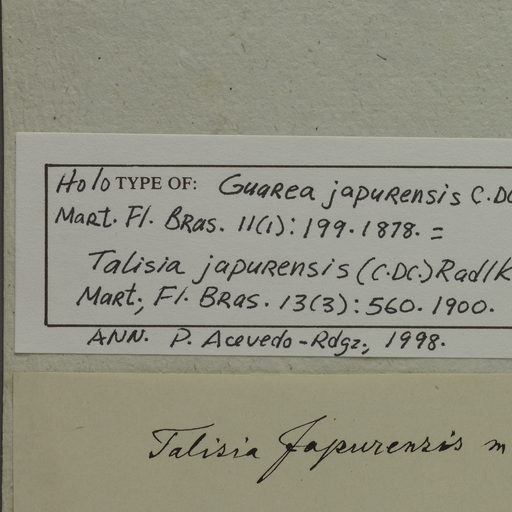 Holo TYPE OF: Guarea japurensis C.DC
Mart. Fl. Bras. 11(1): 199. 1878. =
Talisia japurensis (C.DC.) Radlk
Mart., Fl. Bras. 13(3): 560. 1900.
ANN. P. Acevedo-Rdgz., 1998.
Talisia Japurensis m